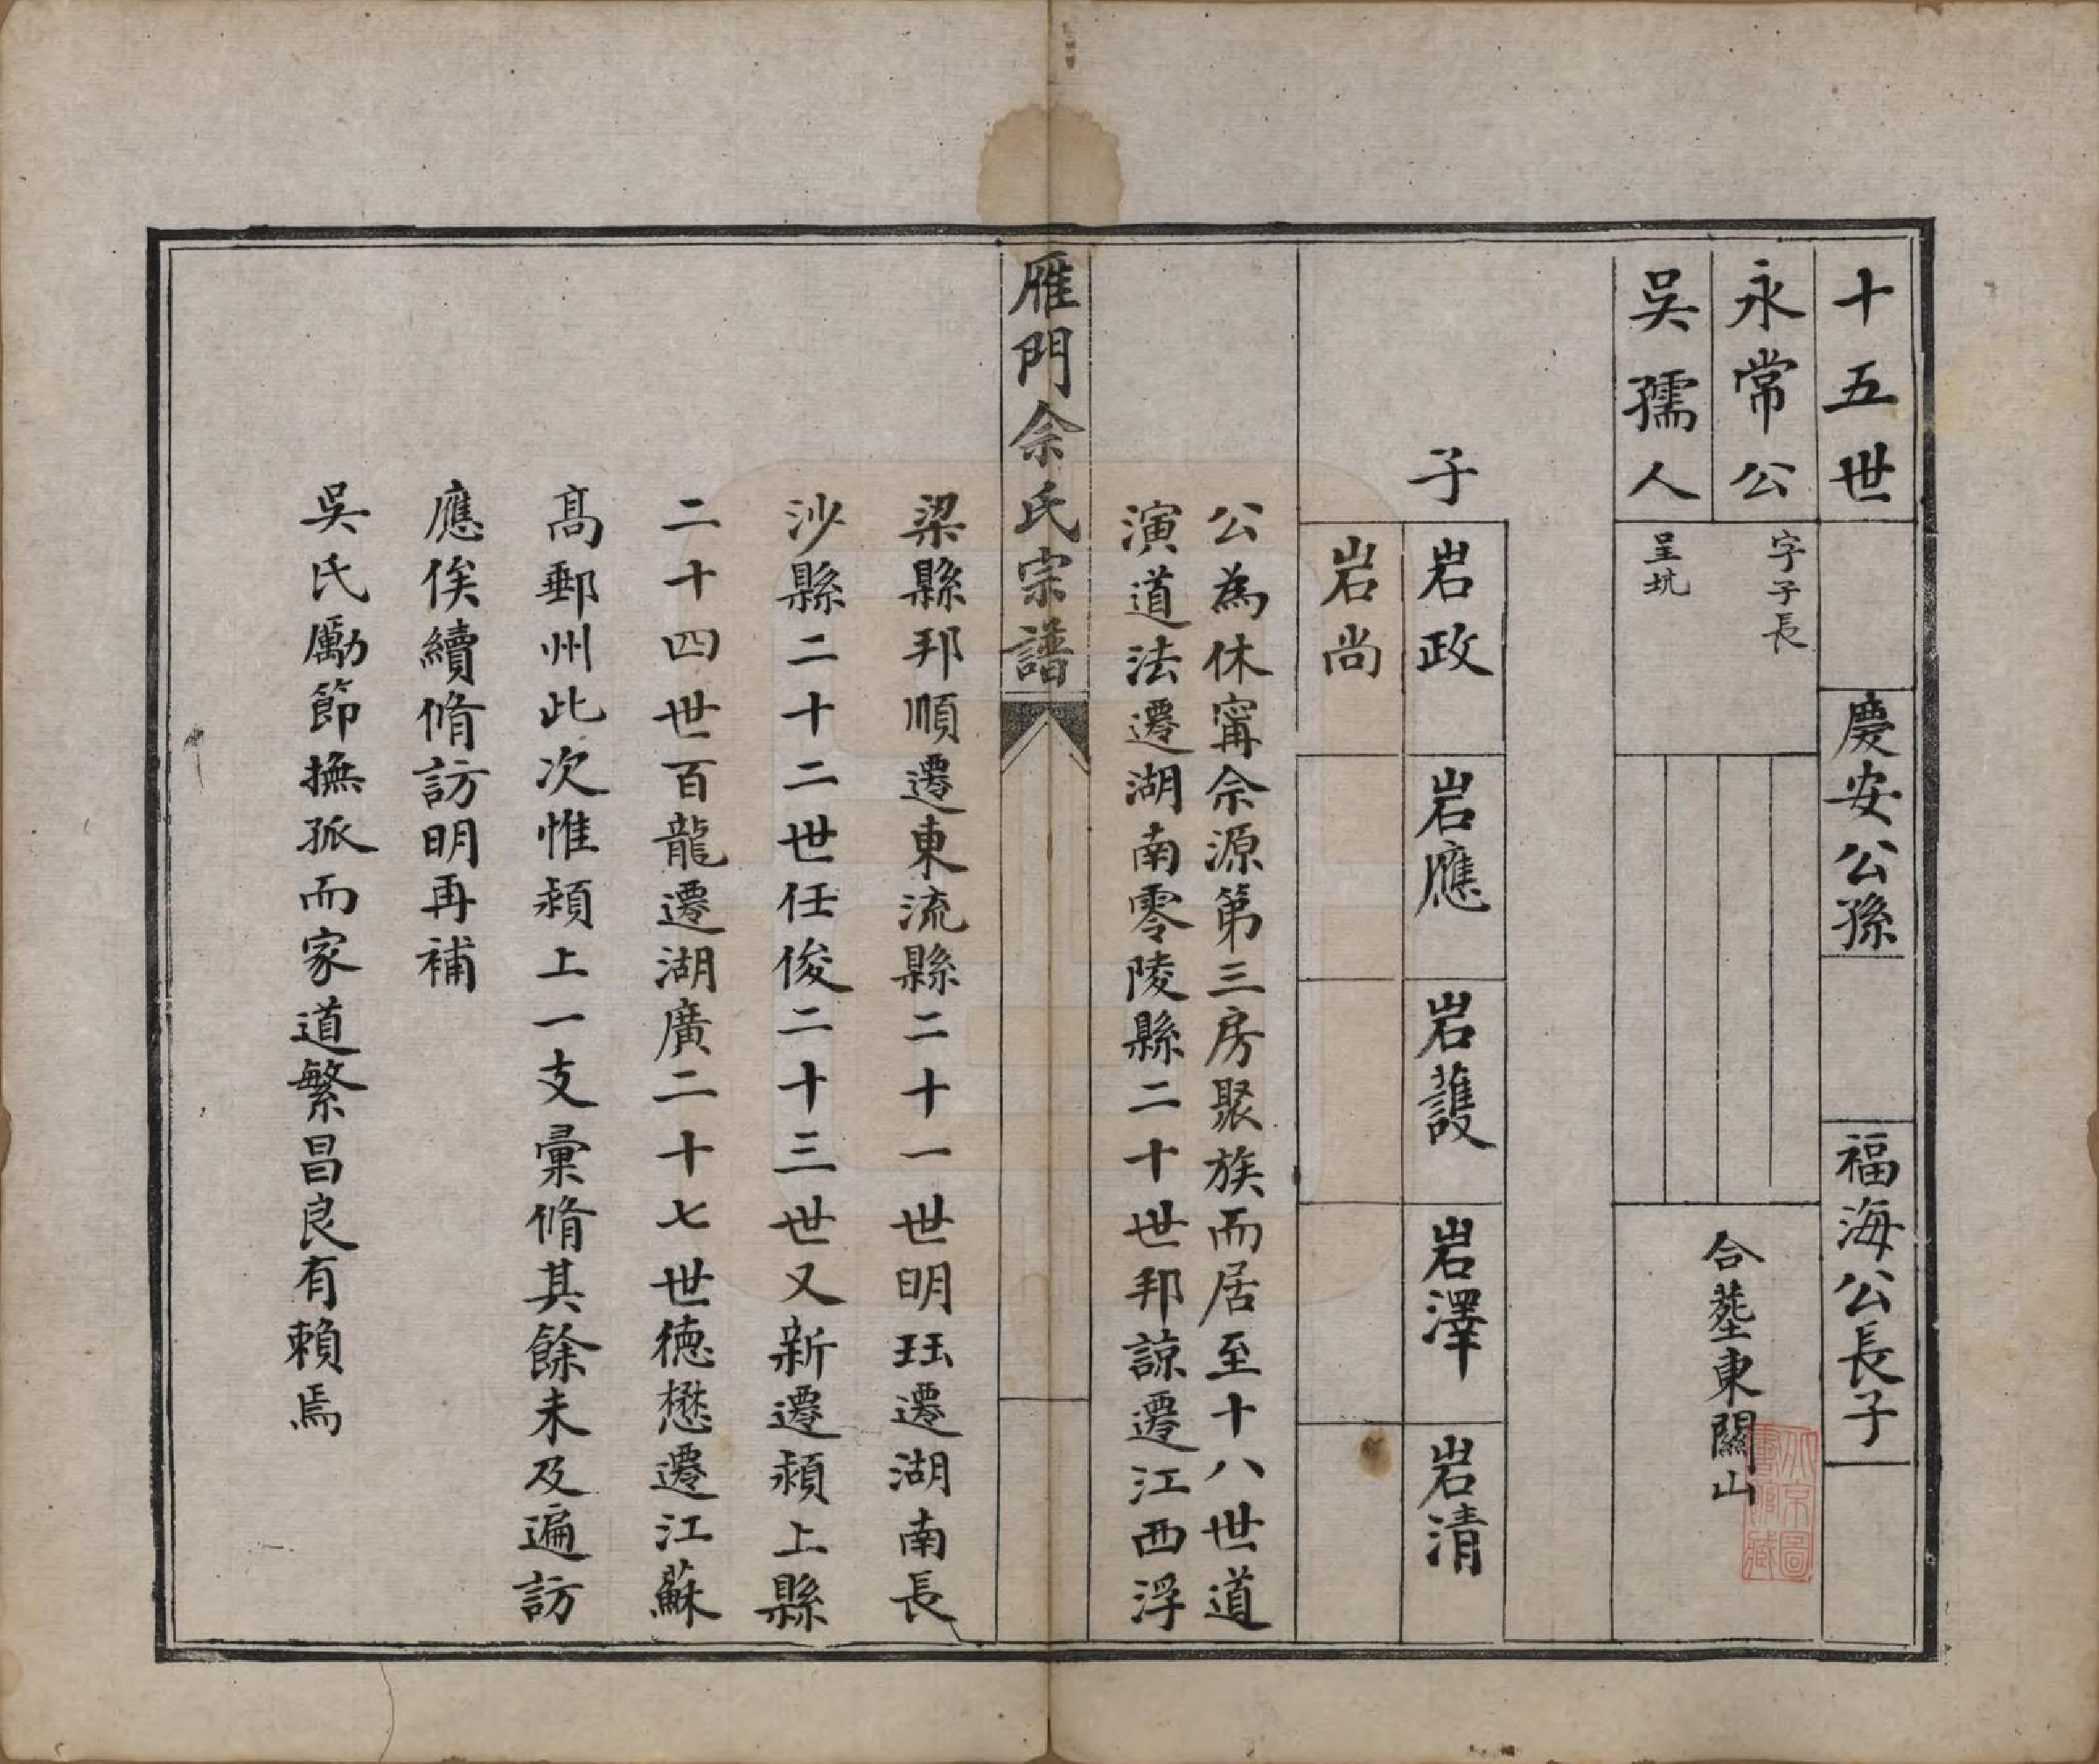 十五世
慶安公孫
福海公長子
永常公
字子長
吳孺人
呈坑
合塟東關山
子
岩政
岩應
岩護
岩澤
岩清
岩尚
公為休寗佘源第三房聚族而居至十八世道
演道法遷湖南零陵縣二十世邦諒遷江西浮
雁門佘氏宗譜
梁縣邦順遷東流縣二十一世明珏遷湖南長
沙縣二十二世任俊二十三世又新遷潁上縣
二十四世百龍遷湖廣二十七世徳懋遷江蘇
髙郵州此次惟潁上一支彚脩其餘未及遍訪
應俟續脩訪明再補
吳氏勵節撫孤而家道繁昌良有賴焉
北京圖
書館藏